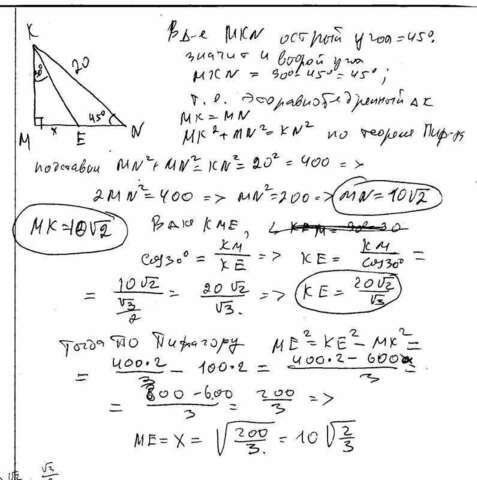 K
30°
20
45°
M x E N
В Δ-е MKN острый угол = 45°.
значит и второй угол
MKN = 90°-45° = 45°;
т.е. это равнобедренный Δк
MK = MN
MK² + MN² = KN² по теореме Пиф-ра
подставим MN² + MN² = KN² = 20² = 400 =>
2MN² = 400 => MN² = 200 => MN = 10√2
MK = 10√2 В Δке KME,
cos30° = KM/KE => KE = KM/cos30° =
= 10√2/(√3/2) = 20√2/√3. => KE = 20√2/√3
Тогда по Пифагору ME² = KE² - MK² =
= 400·2/3 - 100·2 = 400·2 - 600/3 =
= 800 - 600/3 = 200/3 =>
ME = X = √(200/3.) = 10√(2/3)